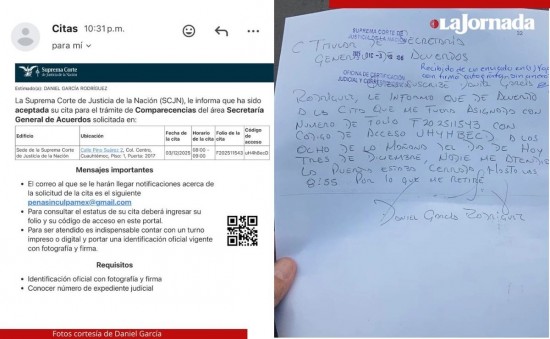 Citas 10:31 p.m.
para mí
Suprema Corte
de Justicia de la Nación
Estimado(a): DANIEL GARCÍA RODRÍGUEZ
La Suprema Corte de Justicia de la Nación (SCJN), le informa que ha sido
aceptada su cita para el trámite de Comparecencias del área Secretaría
General de Acuerdos solicitada en:
Edificio Ubicación Fecha de la cita Horario de la cita Folio de la cita Código de acceso
Sede de la Suprema Corte de Justicia de la Nación Calle Pino Suárez 2, Col. Centro, Cuauhtémoc, Piso: 1, Puerta: 2017 03/12/2025 08:00 - 09:00 F202511543 uH4hBecD
Mensajes importantes
El correo al que se le harán llegar notificaciones acerca de
la solicitud de la cita es el siguiente
penasinculpamex@gmail.com
Para consultar el estatus de su cita deberá ingresar su
folio y su código de acceso en este portal.
Para ser atendido es indispensable contar con un turno
impreso o digital y portar una identificación oficial vigente
con fotografía y firma.
Requisitos
Identificación oficial con fotografía y firma
Conocer número de expediente judicial
Fotos cortesía de Daniel García
La Jornada
SUPREMA CORTE DE
C TITULAR DE SECRETARÍA
GENERAL DE ACUERDOS
OFICINA DE CERTIFICACIÓN
JUDICIAL Y CORRESPONDENCIA
Recibido de
con firma
SUSCRIBE DANIEL GARCÍA
RODRÍGUEZ, LE INFORMO QUE DE ACUERDO
A LA CITA QUE ME TUVO ASIGNADA CON
NÚMERO DE FOLIO F202511543 CON
CÓDIGO DE ACCESO UH4HBECD A LAS
OCHO DE LA MAÑANA DEL DÍA DE HOY
TRES DE DICIEMBRE, NADIE ME ATENDIÓ
LA PUERTA ESTABA CERRADA HASTA LAS
8:55 POR LO QUE ME RETIRÉ
Daniel García Rodríguez